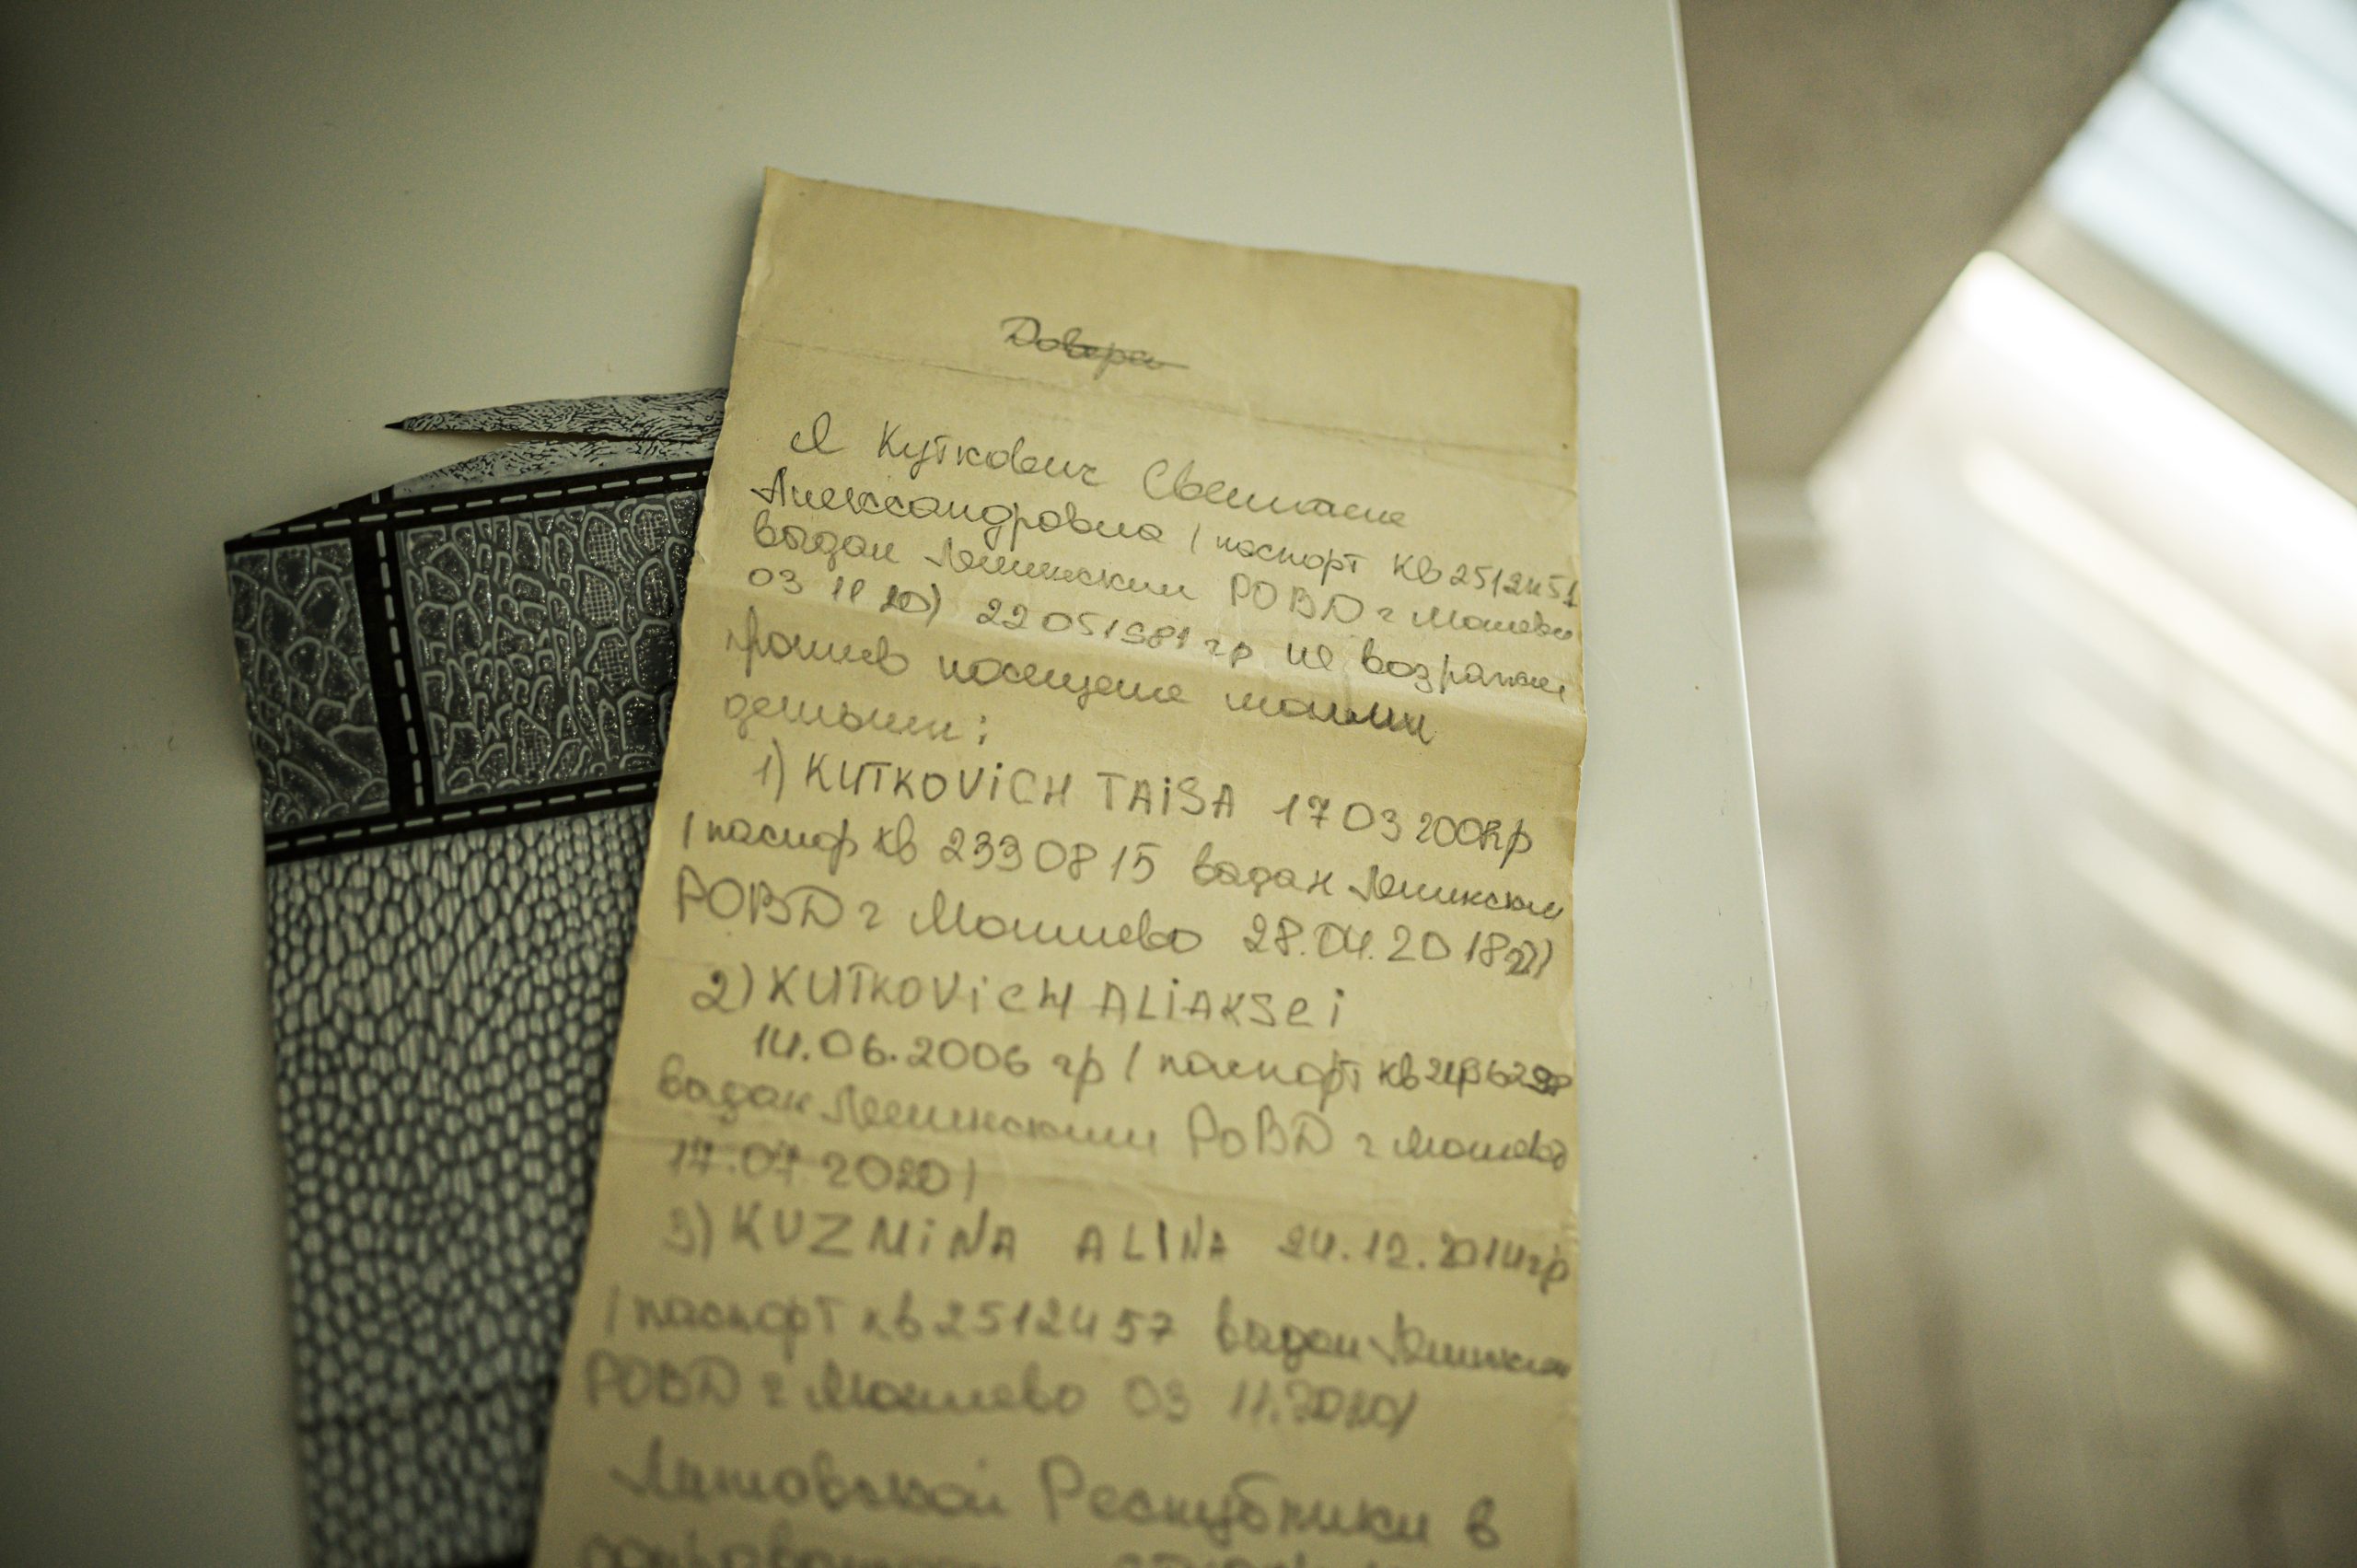 Довере
Я Куткович Светлана
Александровна / паспорт КВ2512451
выдан Ленинским РОВД г Могилево
03 11 20) 22 05 1981 гр не возражаю
против посещение моими
детьми:
1) KUTKOViCH TAiSA 17 03
/ паспор кв 2330815 выдан Ленинским
РОВД г Могилево 28.04.2018
2) KUTKOViCH ALiAKSei
14.06.2006 гр / паспорт кв
выдан Ленинским РОВД г Могилево
17.07.2020)
3) KUZMiNA ALINA 24.12.2014гр
/ паспорт кв2512457 выдан Ленинским
РОВД г Могилево 03 11.2020/
Литовской Республики в